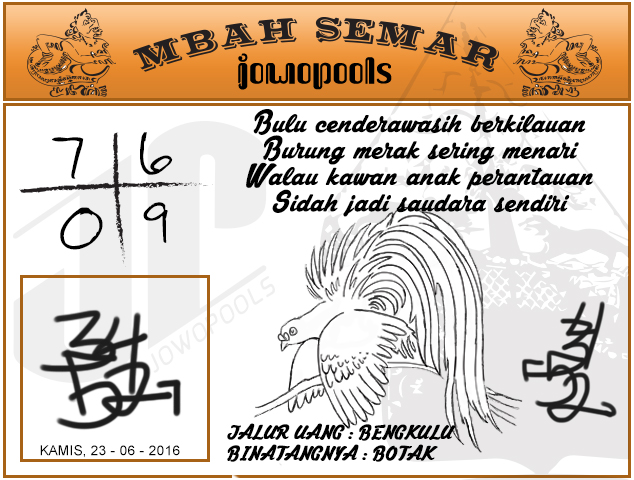 MBAH SEMAR
jowopools
7 6
0 9
Bulu cenderawasih berkilauan
Burung merak sering menari
Walau kawan anak perantauan
Sidah jadi saudara sendiri
JOWOPOOLS
KAMIS, 23 - 06 - 2016
JALUR UANG : BENGKULU
BINATANGNYA : BOTAK